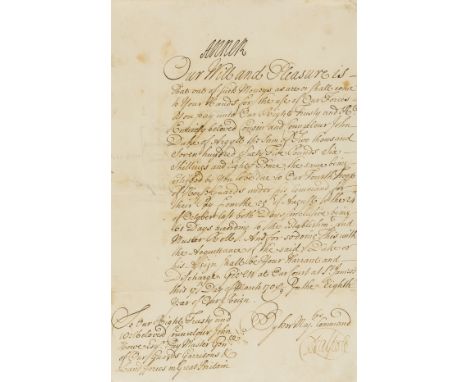 ANNE R
Our Will and Pleasure is
that out of such Moneys as are or shall come
to Your Hands for the use of Our Forces
You pay unto Our Right Trusty and
Entirely beloved Cousin and Councellour John
Duke of Argyll the Sum of Two thousand
Seven hundred Sixty Five Pounds Six
Shillings and Eight Pence the same being
to be due to Our Fourth Troop
of Guards under his command for
their Pay from the 25 of August to the 24
of October last both Days inclusive being
61 Days according to the Establishm.t and
Muster Rolls. And for so doing This with
the Acquittance of the said Duke or
his Assign shall be Your Warrant and
Discharge Given at Our Court at S.t James's
this Day of March 1709 In the Eighth
Year of Our Reign.
To Our Right Trusty and
Welbeloved Councellour John
Howe Esq.r Pay Master Gen.ll
of Our Guards Garrisons &
Land forces in Great Britain
By her Ma.ts Command